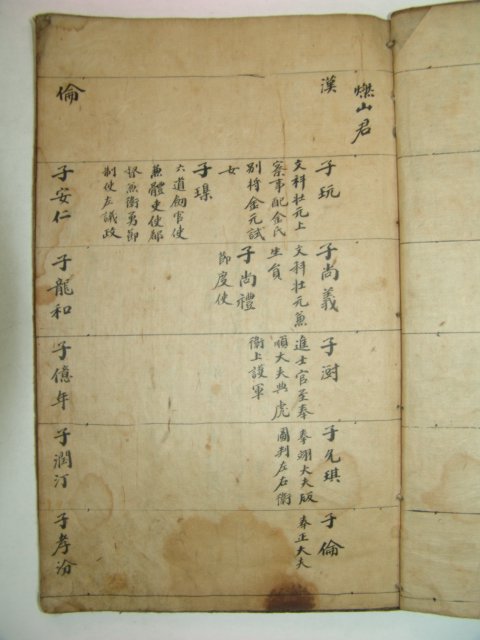 燦山君
漢
子玩
文科壯元上
案事配金氏
別将金元試
女
子璟
六道劒官使
兼體吏使都
督兼衛勇節
制使左議政
子尚義
文科壯元兼
生員
子尚禮
節度使
子澍
進士官至奉
順大夫典虎
衛上護軍
子允琪
奉翊大夫版
圖判左右衛
子倫
奉正大夫
倫
子安仁
子龍和
子億年
子潤汀
子孝汾